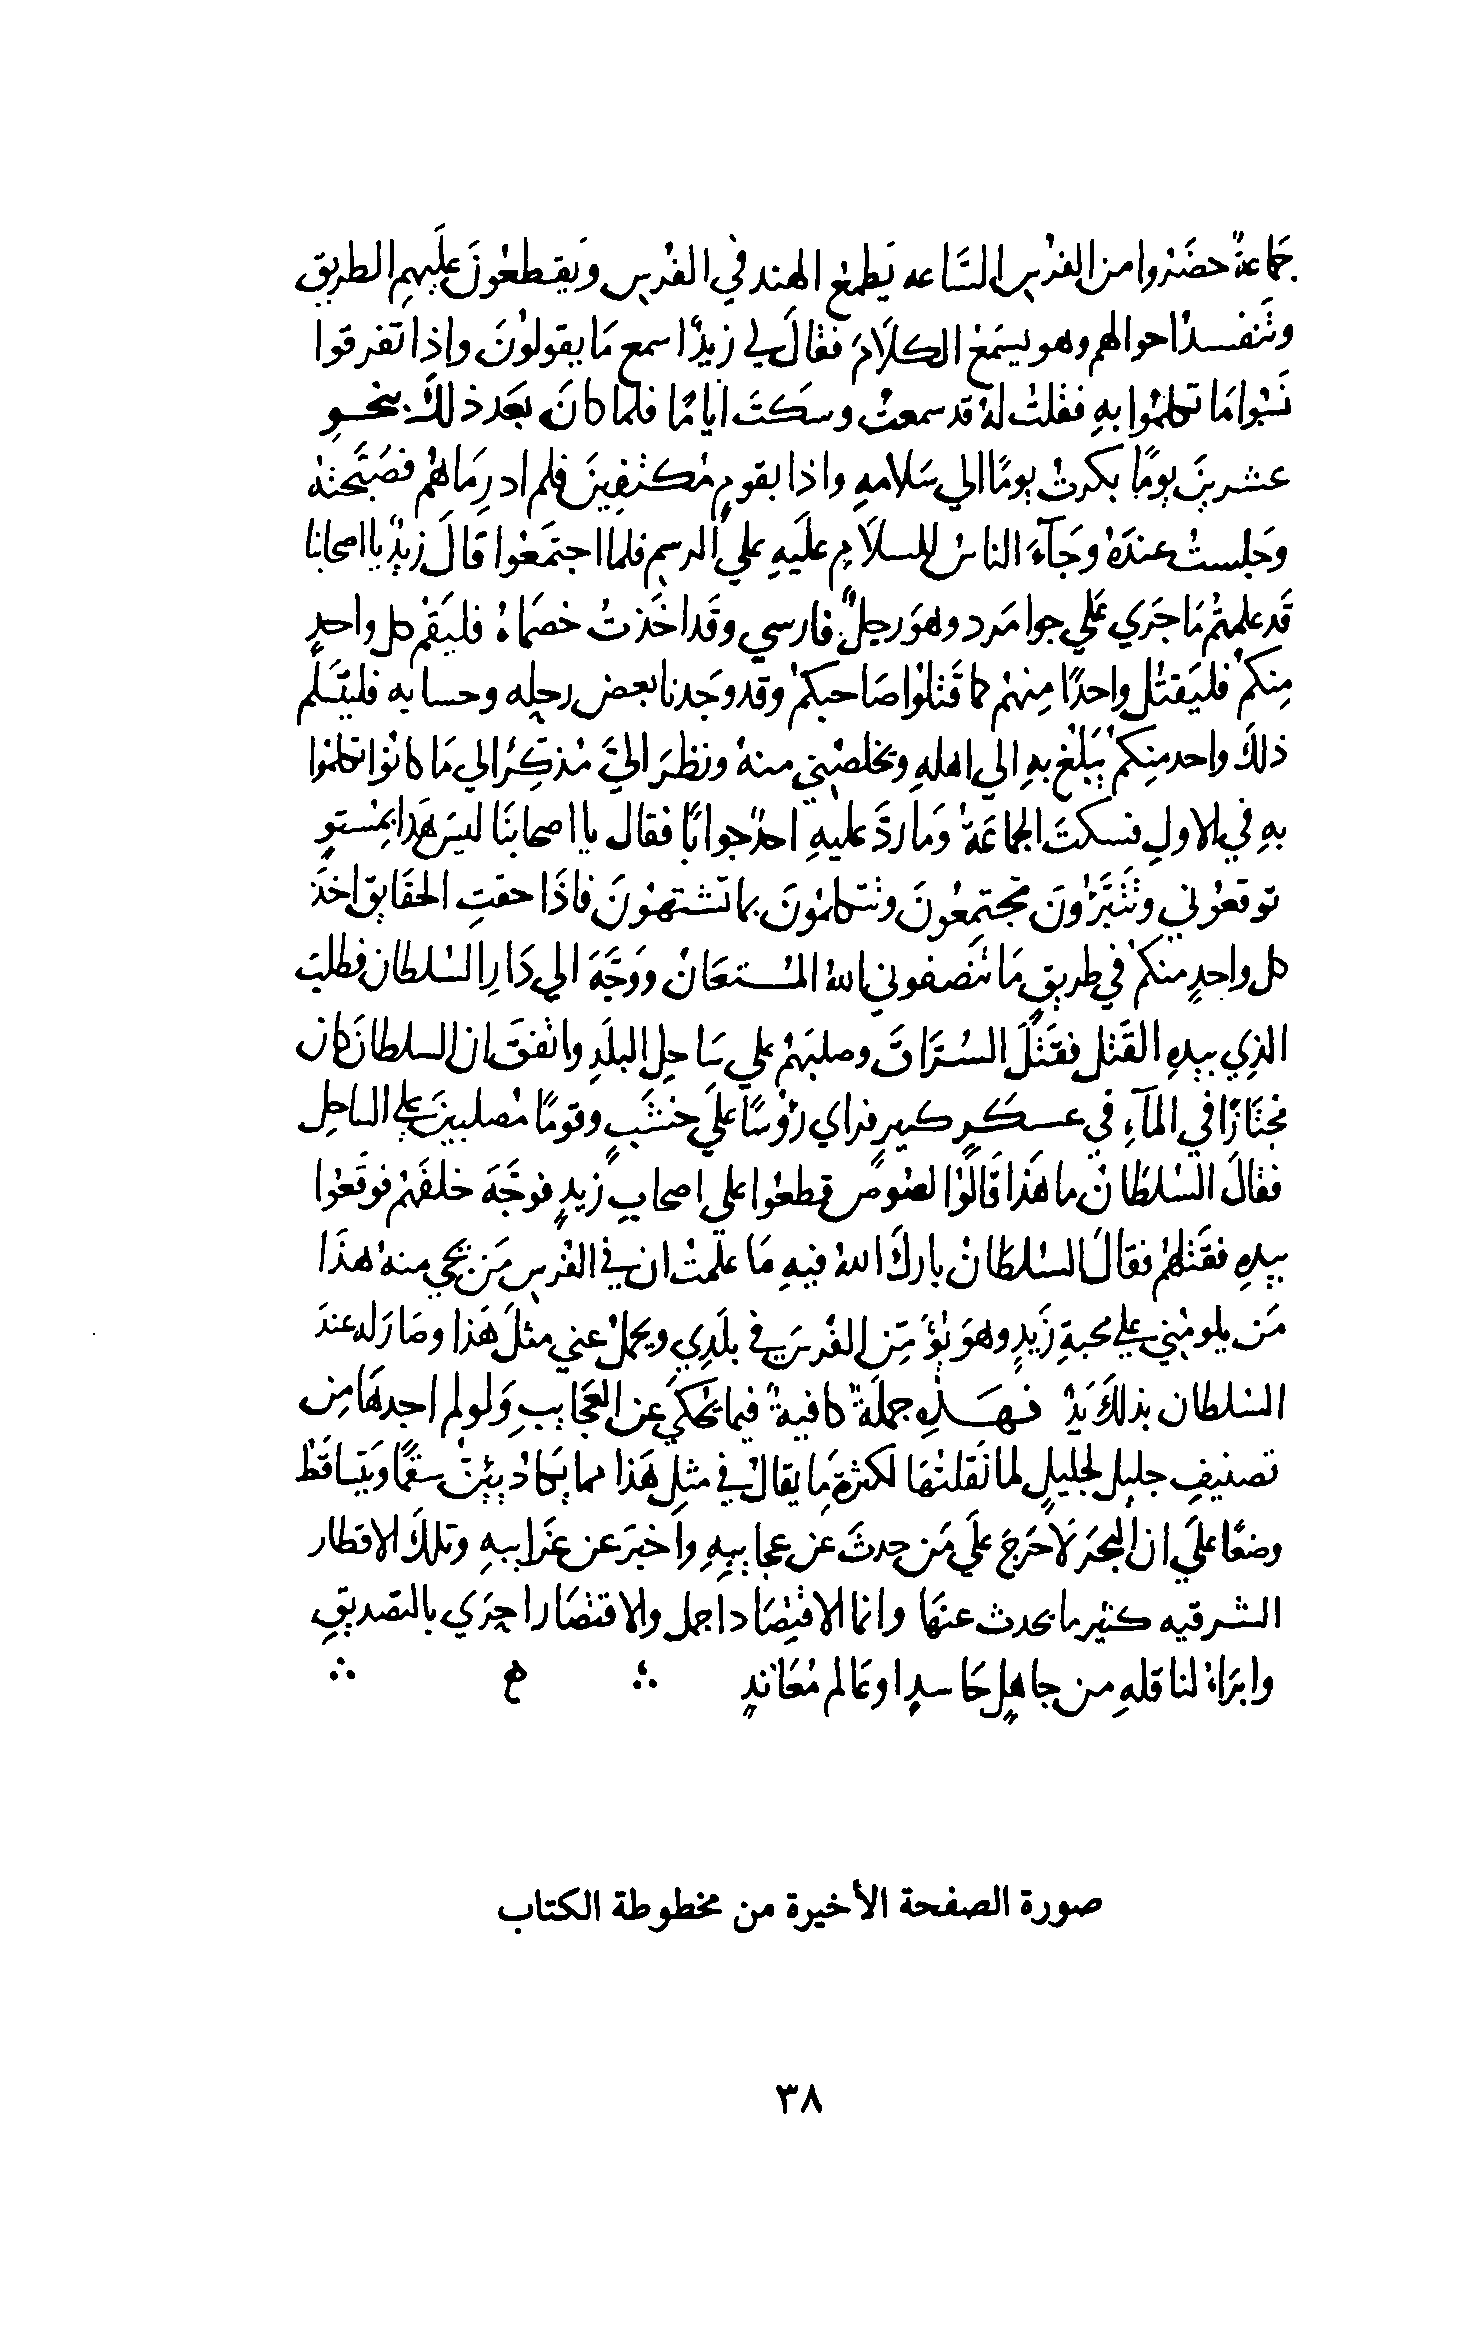 جماعةٌ حضَرُوا من الفرْس الساعه يَطمعُ الهند في الفُرس ويَقطعُونَ عليهِم الطريق
وتَفسدُ احوالهم وهو يسمَعُ الكلَامَ فقالَ لي زيدٌ اسمع مَا يقولوْنَ وإذا تفرقوا
نَسُوا مَا تكلمُوا بهِ فقلتُ لهُ قد سمعتُ وسكتَ ايامًا فلما كانَ بَعد ذلك بنحوِ
عشرينَ يومًا بكرتُ يومًا الي سَلامهِ واذا بقومٍ مُكتفِينَ فلم ادرِ مَا هُم فصَبَّحتهُ
وَجلستُ عندَهُ وجَآءَ الناسُ للسلَامِ علَيهِ علي الرسمِ فلما اجتمَعُوا قالَ زيدٌ يا اصحابنا
قَد علمتُم مَا جَرَي عَلي جوامَرد وهوَ رجلٌ فارسي وقَد اخَذتُ خصمَاهُ فليَقم كل واحدٍ
مِنكمْ فليَقتُل واحدًا مِنهمْ كما قَتلوُا صَاحبكمْ وقد وجَدنا بعض رحله وحسابه فليتَسَلَّم
ذلكَ واحد منِكمْ يَبلغ بهِ الي اهلهِ ويخلصُني منهُ ونظرَ اليَّ مُذكِرًا لي مَا كانُوا تكلمُوا
بهِ في الاولِ فسكتَ الجماعَةُ وَما ردَّ عليهِ احدٌ جوابًا فقال يا اصحابنَا ليسَ هَذا بمُستوٍ
توقعُوني وتَتَبَّرؤنَ تجتمِعُونَ وتتكلمُونَ بما تشتهوْنَ فاذَا حقتِ الحقَايق اخذَ
كل واحِدٍ منكمْ في طريقٍ مَا تَنصفوني اللهُ المُستعَانُ ووجَّهَ الي دَارِ السُلطان فطلبَ
الذِي بيدهِ القَتل فقتَلَ السُرَّاقَ وصلبَهُمْ علي سَاحِل البلَدِ واتفقَ ان السلطانَ كان
مجتَازًا في المآءِ في عسكَرٍ كبيرٍ فراي رؤُسًا علَي خشَبٍ وقومًا مُصلبينَ علي الساحِل
فقالَ السُلطَانُ ما هَذا قَالوُا لصُوصٌ قطعُوا علي اصحابِ زيدٍ فوجَّهَ خلفَهُمْ فوقَعُوا
بيدهِ فقَتلهُمْ فقالَ السُلطَانُ باركَ اللهُ فيهِ مَا علمتُ ان في الفُرسِ مَن يجي منهُ هذَا
مَن يلومُني علي محبةِ زَيدٍ وهوَ مِن الفُرسِ في بلَدِي ويحملُ عني مثلَ هَذا وصَارَ له عندَ
السُلطان بذلكَ يَدٌ فهَذِهِ جملَةٌ كافيةٌ فيما يُحكَي عَن العَجَايبِ وَلو لم اجدهَا مِن
تصنيفِ جليلٍ لجليلٍ لما نَقلتُهَا لكثرةِ مَا يقالُ في مثلِ هَذا مما يَكادُ يبيَنُ سقمًا ويتَساقَطُ
وضعًا علَي ان البحرَ لَا حَرَجَ علَي مَن حدثَ عن عجايبِهِ واَخبَرَ عن غرَايبهِ وتلكَ الاقطار
الشرقيه كثير ما يحدث عنهَا وانما الاقتِصَاد اجمل والاقتصَار احرَي بالتصديقِ
وابرَاءُ لناقلهِ من جاهلٍ حَاسدٍ او عَالم مُعَاندٍ ∴ ه ∴
صورة الصفحة الأخيرة من مخطوطة الكتاب
٣٨